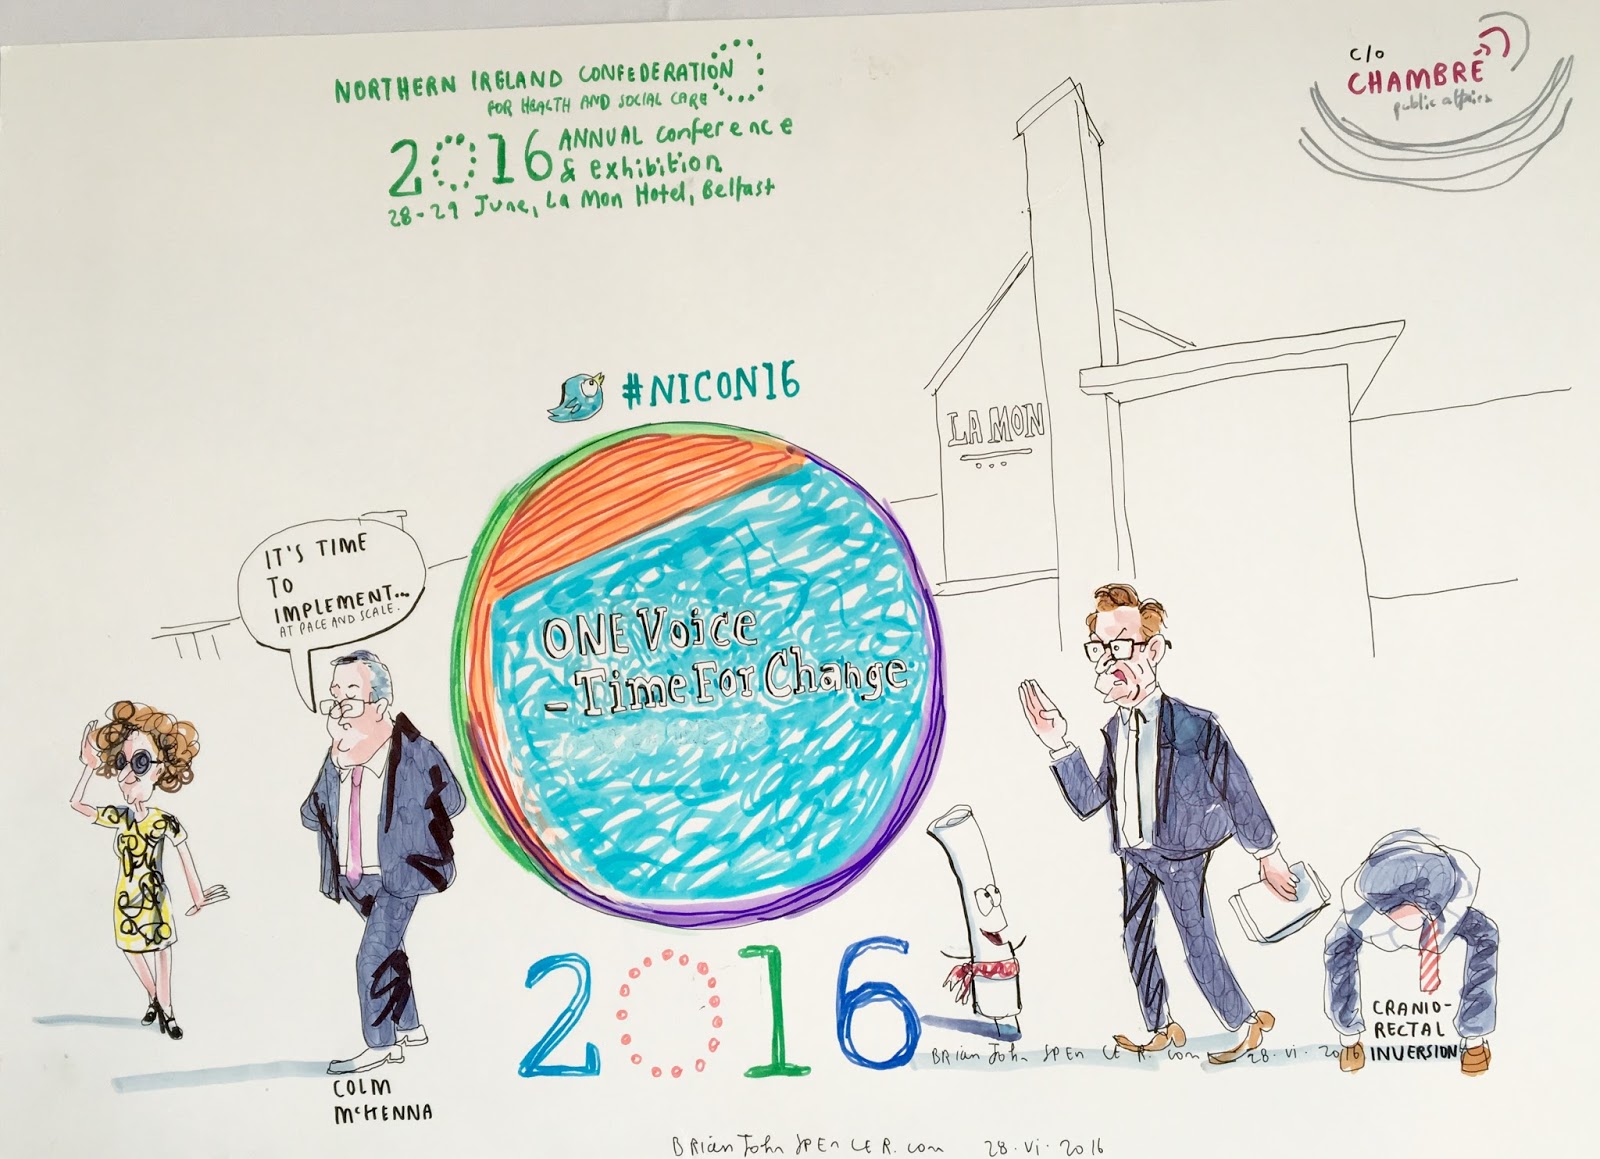 NORTHERN IRELAND CONFEDERATION
FOR HEALTH AND SOCIAL CARE
2016 ANNUAL conference
& exhibition
28-29 June, La Mon Hotel, Belfast
c/o
CHAMBRE
public affairs
#NICON16
LA MON
IT'S TIME
TO
IMPLEMENT...
AT PACE AND SCALE.
ONE Voice
- Time For Change
2016
COLM
McKENNA
CRANIO-
RECTAL
INVERSION
BRIAN JOHN SPENCER.com 28.vi.2016
BRIAN JOHN SPENCER.com 28.vi.2016